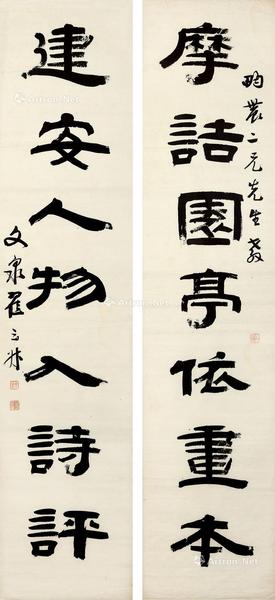 二兄先生教
摩詰園亭依畫本
建安人物入詩評
文泉翟云升
Artron.Net